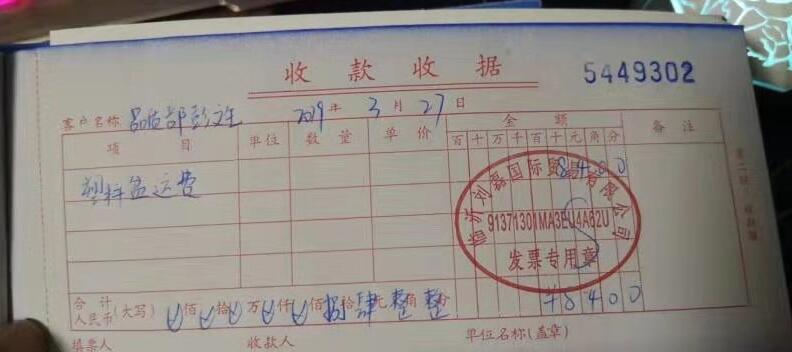 收款收据
5449302
客户名称 品质部彭文生 2019年 3月 27日
项目 单位 数量 单价 金额 备注
百十万千百十元角分
塑料盒运费 8400
临沂刘磊国际贸易有限公司
91371301MA3EU4A62U
发票专用章
合计人民币(大写) 佰 拾 万 仟 佰 捌拾肆元整角整分 ¥8400
填票人 收款人 单位名称(盖章)